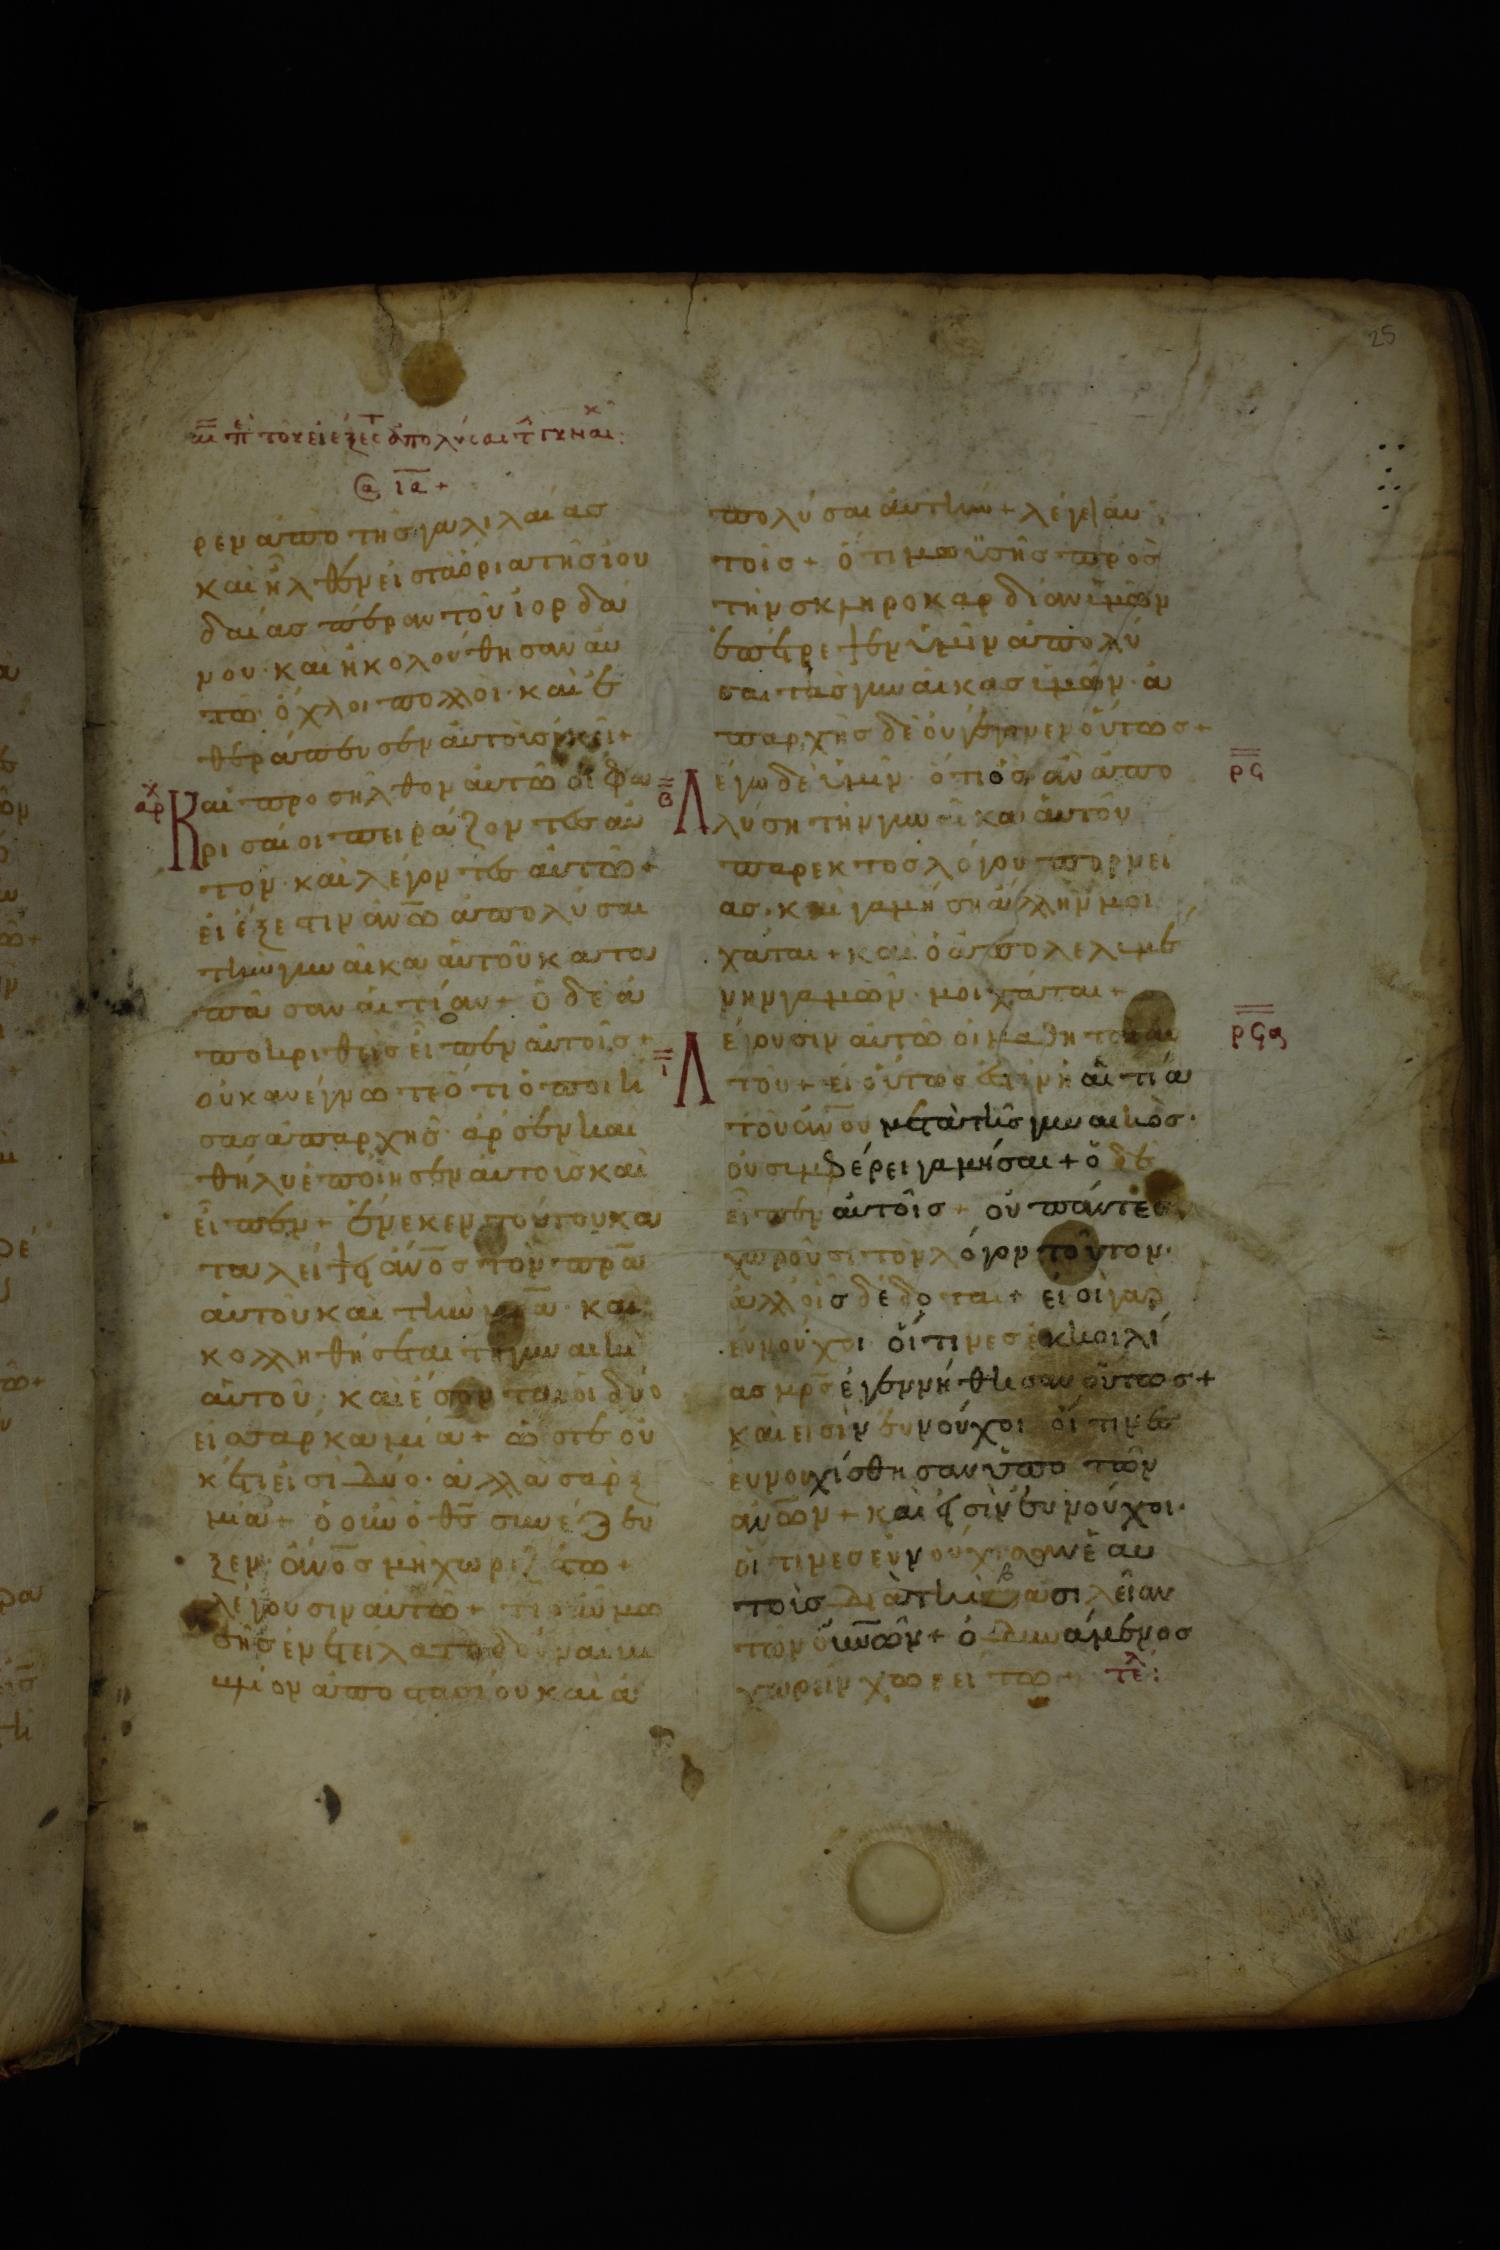 25
ρεν ἀπὸ τῆς γαλιλαίας
καὶ ἦλθεν εἰς τὰ ὅρια τῆς ἰου
δαίας πέραν τοῦ ἰορδά
νου· καὶ ἠκολούθησαν αυ
τῶ ὄχλοι πολλοὶ· καὶ ἐ
θεράπευσεν αὐτοὺς ἐκεῖ +
Καὶ προσῆλθον αὐτῶ οἱ φα
ρισαῖοι πειράζοντες αὐ
τὸν· καὶ λέγοντες αὐτῶ +
εἰ ἔξεστιν ἀνω̅ ἀπολῦσαι
τὴν γυναῖκα αὐτοῦ κατὰ
πᾶσαν αἰτίαν + ὁ δὲ ἀ
ποκριθεὶς εἶπεν αὐτοῖς +
οὐκ ἀνέγνωτε ὅτι ὁ ποιή
σας ἀπαρχῆς· ἄρσεν καὶ
θῆλυ ἐποίησεν αὐτοὺς καὶ
εἶπεν + ἕνεκεν τούτου κα
ταλείψει ἄνο̅σ τὸν πρ̅α
αὐτοῦ καὶ τὴν μρ̅α· καὶ
κολληθήσεται τῆ γυναικὶ
αὐτοῦ· καὶ ἔσονται οἱ δύο
εἰς σάρκα μίαν + ὥστε οὐ
κέτι εἰσὶ δύο· ἀλλὰ σὰρξ
μία + ὃ οὖν ὁ θς̅ συνέζευ
ξεν· ἄνο̅ς μὴ χωριζέτω +
λέγουσιν αὐτῶ + τί οὖν μω
σῆς ἐνετείλατο δοῦναι βι
βλίον ἀποστασίου καὶ ἀ
πολῦσαι αὐτὴν + λέγει αυ
τοῖς + ὅτι μωϋσῆς πρὸς
τὴν σκληροκαρδίαν ὑμῶν
ἐπέτρεψεν ὑμῖν ἀπολῦ
σαι τὰς γυναίκας ὑμῶν· ἀ
παρχῆς δὲ οὐ γέγονεν οὕτως +
Λέγω δὲ ὑμῖν· ὅτι ὃς ἂν ἀπο
λύση τὴν γυναῖκα αὐτοῦ
παρεκτὸς λόγου πορνεί
ας· καὶ γαμήση ἄλλην μοι
χάται + καὶ ὁ ἀπολελυμέ
νην γαμῶν· μοιχάται +
Λέγουσιν αὐτῶ οἱ μαθηταὶ αυ
τοῦ + εἰ οὕτως ἐστὶν ἡ αἰτία
τοῦ ἀνο̅υ μετὰ τῆς γυναικὸς·
οὐ συμφέρει γαμήσαι + ὁ δὲ
εἶπεν αὐτοῖς + οὐ πάντες
χωροῦσι τὸν λόγον τοῦτον·
ἀλλ οἷς δέδοται + εἰσὶ γὰρ
εὐνούχοι οἵτινες ἐκ κοιλί
ας μρ̅ς ἐγεννήθησαν οὕτως +
καὶ εἰσὶν εὐνούχοι οἵτινες
εὐνουχίσθησαν ὑπὸ τῶν
ἀνω̅ν + καὶ εἰσὶν εὐνούχοι·
οἵτινες εὐνούχισαν ἑαυ
τοὺς διὰ τὴν βασιλείαν
τῶν οὐνω̅ν + ὁ δυνάμενος
χωρεῖν χωρείτω + τέλ: